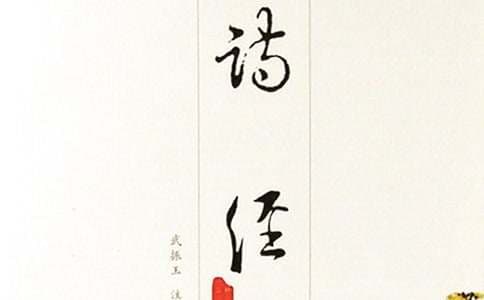 詩
经
武振玉 注